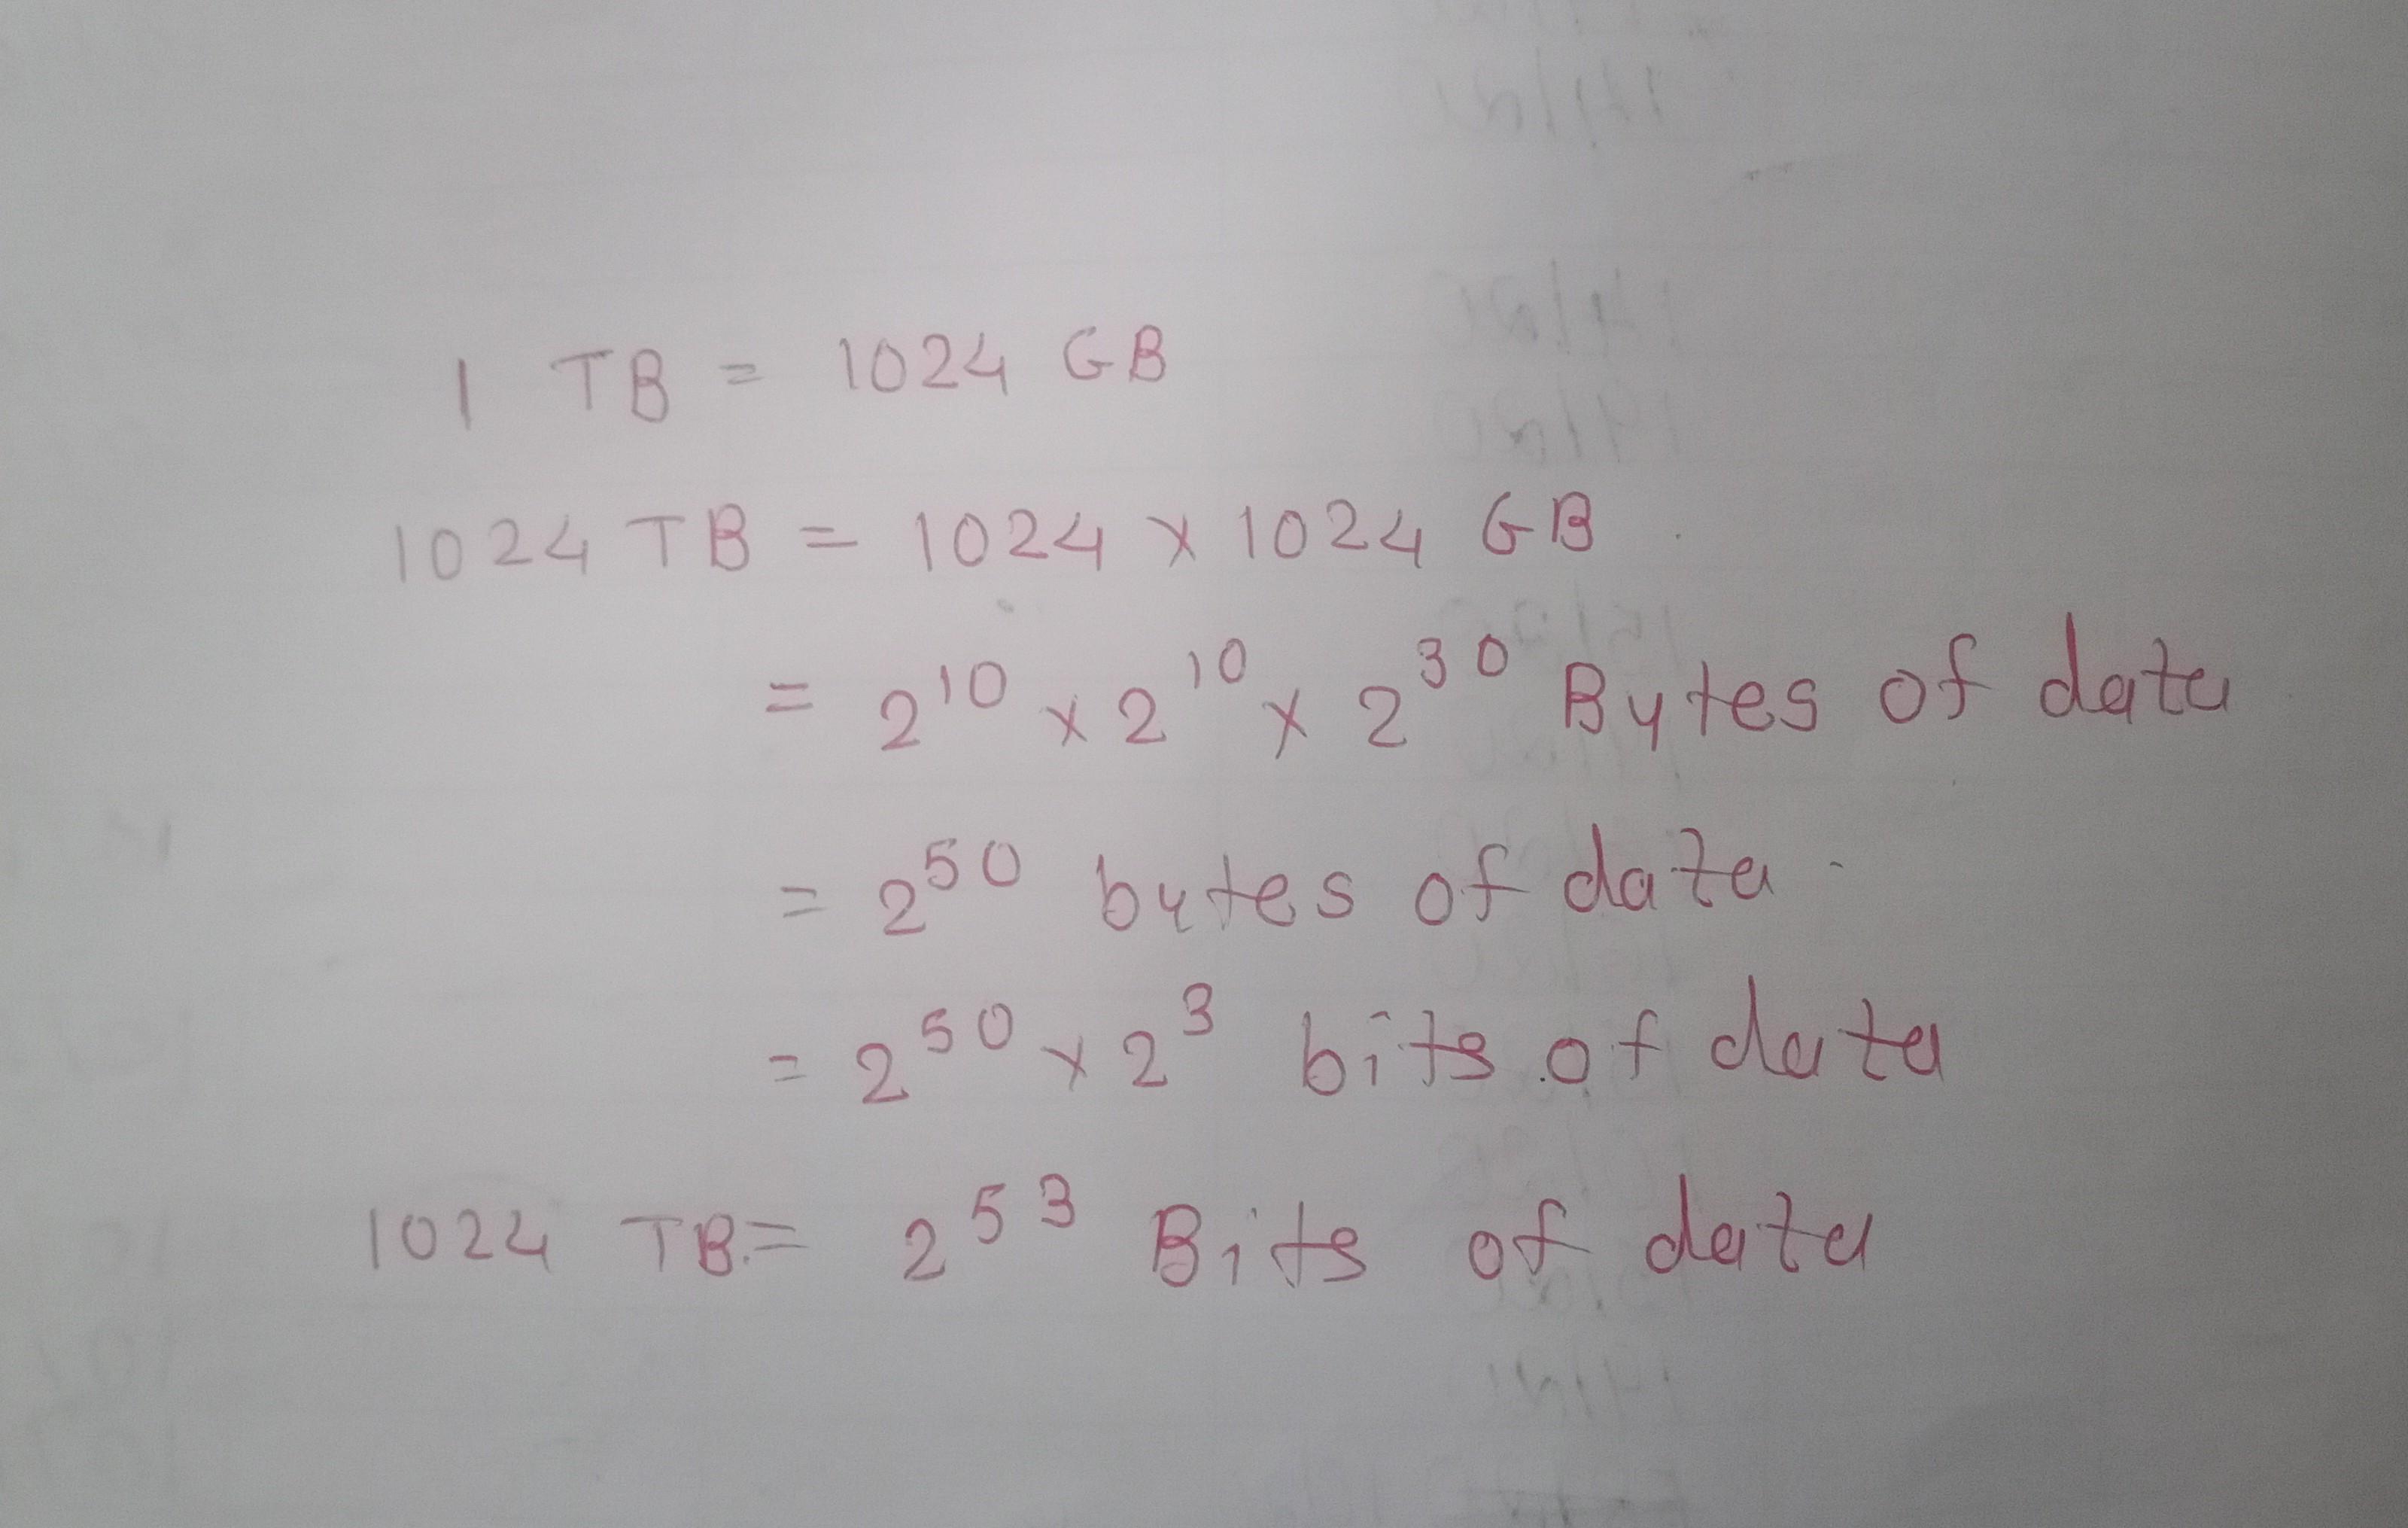 1 TB = 1024 GB
1024 TB = 1024 x 1024 GB.
= 2¹⁰ x 2¹⁰ x 2³⁰ Bytes of data
= 2⁵⁰ bytes of data.
= 2⁵⁰ x 2³ bits of data
1024 TB = 2⁵³ Bits of data